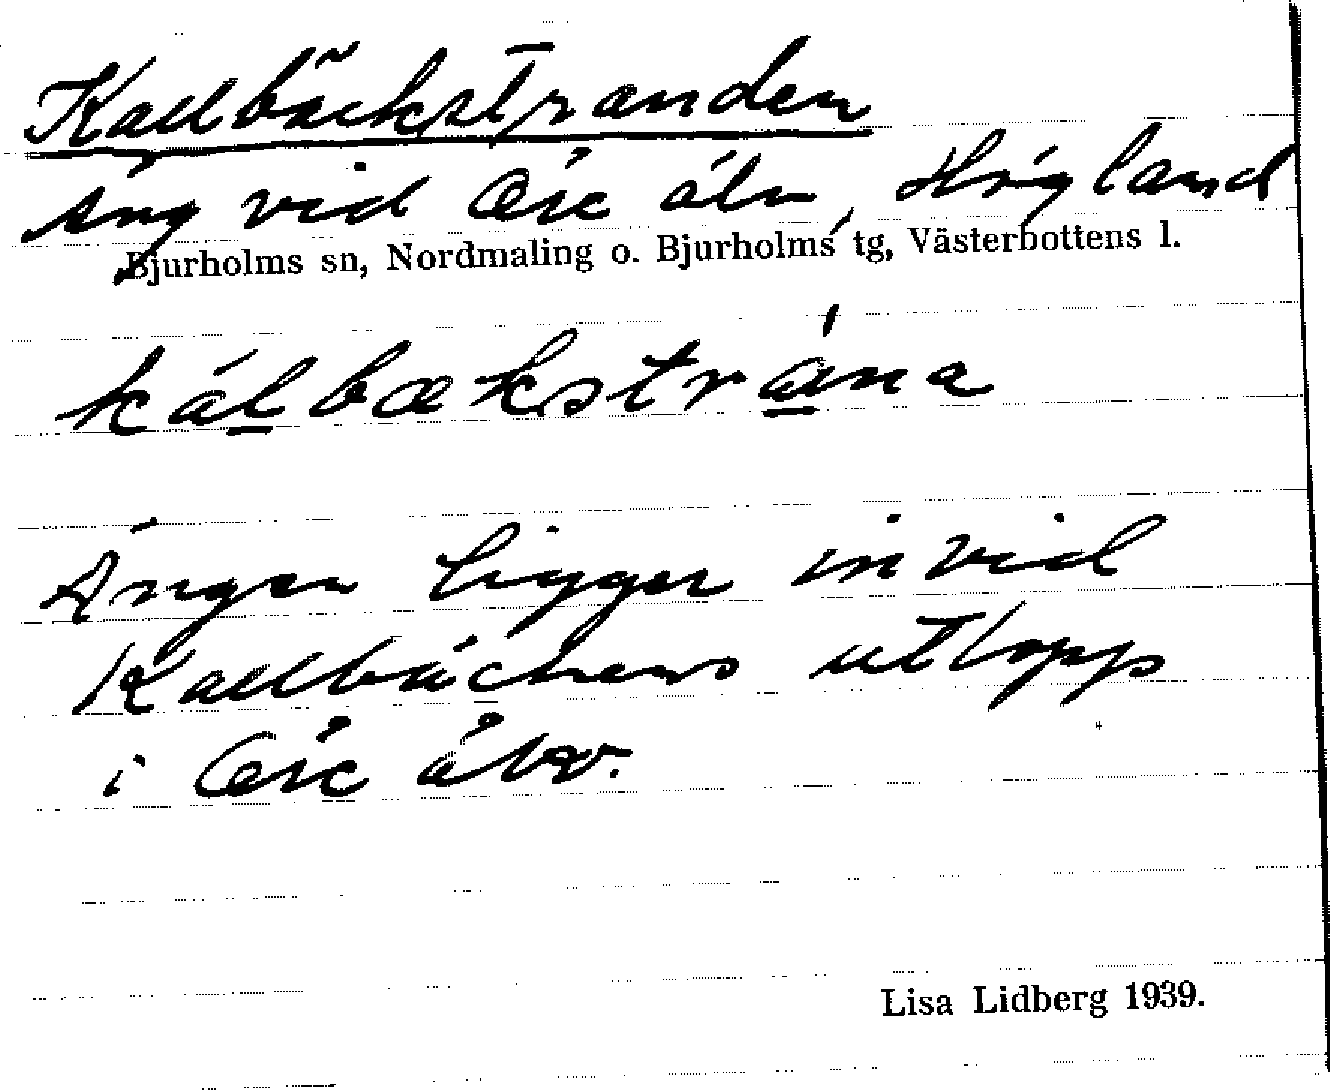 Kallbäckstranden
äng vid Öre älv, Högland
Bjurholms sn, Nordmaling o. Bjurholms tg, Västerbottens l.
kálbækstrána
Ängen ligger invid
Kallbäckens utlopp
i Öre älv.
Lisa Lidberg 1939.